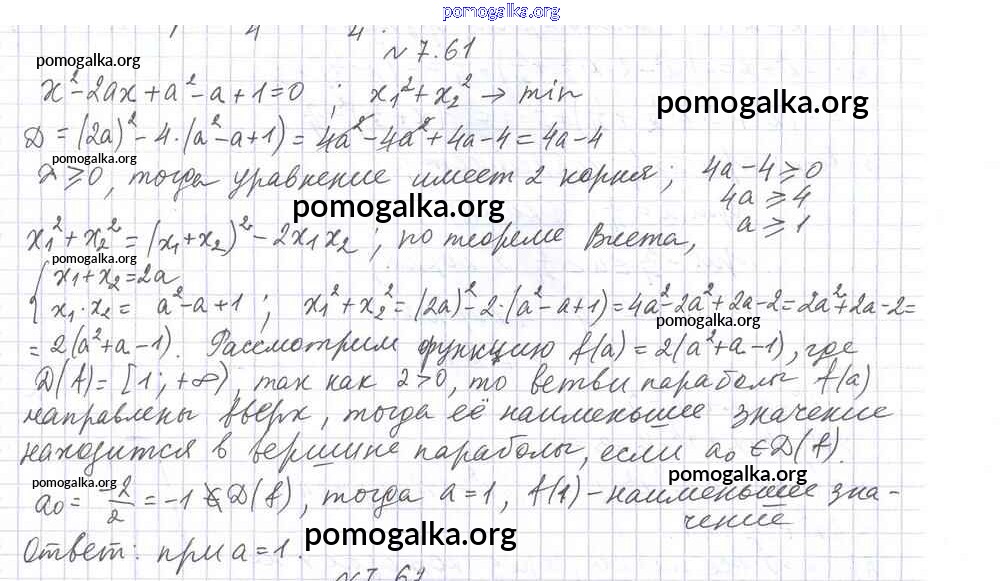 pomogalka.org
№ 7.61
pomogalka.org
x² - 2ax + a² - a + 1 = 0 ; x₁² + x₂² → min
pomogalka.org
D = (2a)² - 4·(a² - a + 1) = 4a² - 4a² + 4a - 4 = 4a - 4
pomogalka.org
D ⩾ 0, тогда уравнение имеет 2 корня ; 4a - 4 ⩾ 0
4a ⩾ 4
pomogalka.org
a ⩾ 1
x₁² + x₂² = (x₁ + x₂)² - 2x₁x₂ ; по теореме Виета,
pomogalka.org
{ x₁ + x₂ = 2a
x₁·x₂ = a² - a + 1 ; x₁² + x₂² = (2a)² - 2·(a² - a + 1) = 4a² - 2a² + 2a - 2 = 2a² + 2a - 2 =
pomogalka.org
= 2(a² + a - 1). Рассмотрим функцию f(a) = 2(a² + a - 1), где
D(f) = [1; +∞), так как 2 > 0, то ветви параболы f(a)
направлены вверх, тогда её наименьшее значение
находится в вершине параболы, если a₀ ∈ D(f).
pomogalka.org
pomogalka.org
a₀ = -2/2 = -1 ∉ D(f), тогда a = 1, f(1) - наименьшее зна-
чение
pomogalka.org
Ответ: при a = 1.
№ 7.62